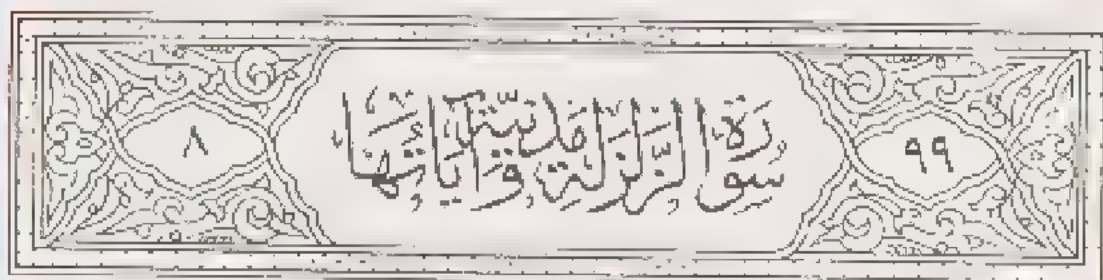 ٩٩ سُورَةُ الزَّلْزَلَةِ مَدَنِيَّةٌ وَآيَاتُهَا ٨